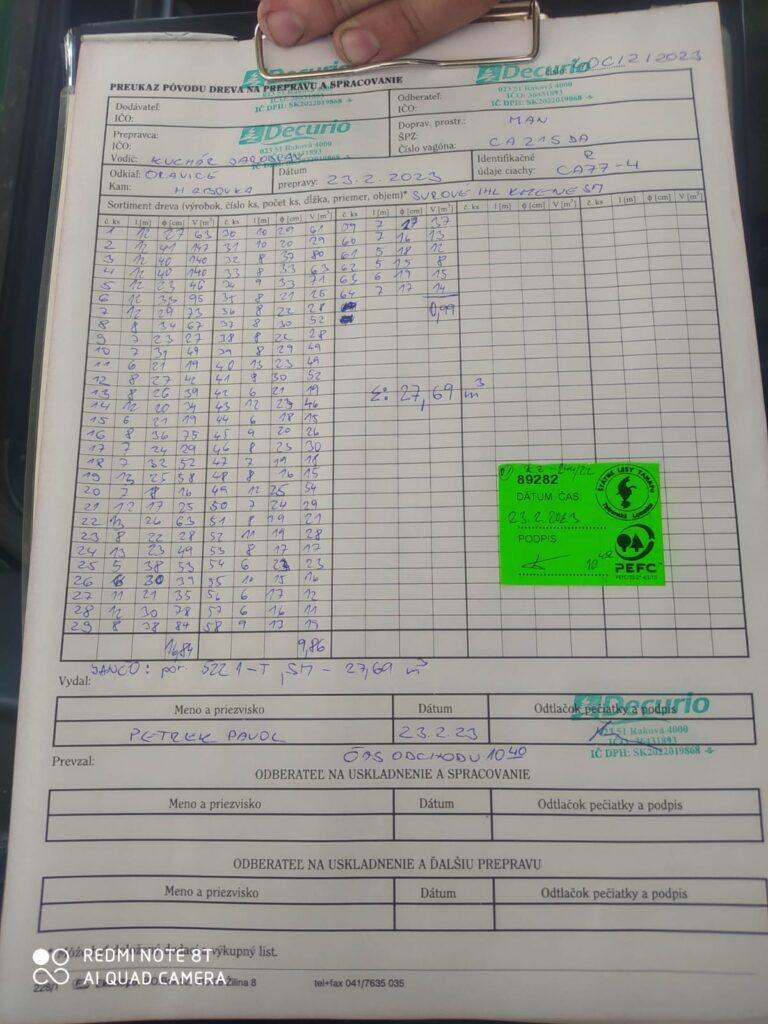 Decurio
023 51 Raková 4000
IČO: 36431893
IČ DPH: SK2022019868 -8-
Decurio
023 51 Raková 4000
IČO: 36431893
IČ DPH: SK2022019868 -8-
číslo: DC/2/2023
PREUKAZ PÔVODU DREVA NA PREPRAVU A SPRACOVANIE
Dodávateľ:
IČO:
Odberateľ:
IČO:
Decurio
023 51 Raková 4000
IČ DPH: SK2022019868 -8-
Prepravca:
IČO:
Vodič: KUCHÁR JAROSLAV
Doprav. prostr.: MAN
ŠPZ:
Číslo vagóna: CA215DA
Odkiaľ: ORAVICE
Kam: HABOVKA
Dátum
prepravy: 23.2.2023
Identifikačné
údaje ciachy: CA77-4
R
Sortiment dreva (výrobok, číslo ks, počet ks, dĺžka, priemer, objem)* SUROVÉ IHL KMENE SM
č. ks l [m] φ [cm] V [m³] č. ks l [m] φ [cm] V [m³] č. ks l [m] φ [cm] V [m³] č. ks l [m] φ [cm] V [m³] č. ks l [m] φ [cm] V [m³]
1 12 27 63 30 10 29 61 59 7 27 37
2 12 41 147 31 10 20 29 60 7 16 13
3 12 40 140 32 8 37 80 61 5 18 12
4 12 40 140 33 8 33 63 62 5 15 8
5 12 23 46 34 9 33 71 63 6 19 15
6 12 33 95 35 8 21 25 64 7 17 14
7 12 29 73 36 8 22 28 0,99
8 8 34 67 37 8 30 52
9 7 23 27 38 8 22 28
10 7 31 49 39 8 29 49
11 6 21 19 40 13 23 49
12 8 27 42 41 8 30 52
13 8 26 39 42 6 21 19 Σ: 27,69 m³
14 12 20 34 43 12 23 46
15 6 21 19 44 6 18 15
16 8 36 75 45 9 20 26
17 7 24 29 46 8 23 30
18 7 32 52 47 7 19 18
19 13 25 58 48 8 16 15
20 7 18 16 49 12 25 54
21 12 17 25 50 7 24 29
22 13 26 63 51 8 19 21
23 8 22 28 52 11 19 28
24 13 23 49 53 8 17 17
25 5 38 53 54 6 23 23
26 6 30 39 55 10 15 16
27 11 21 35 56 6 17 12
28 12 30 78 57 6 16 11
29 8 38 84 58 9 13 15
16,84 9,86
89282
DÁTUM ČAS
23.2.2023
PODPIS
10 40
ŠTÁTNE LESY TANAPu
Tatranská Lomnica
PEFC™
JANCO: por. 522 1-T, SM - 27,69 m³
Vydal:
Meno a priezvisko Dátum Odtlačok pečiatky a podpis
PETREK PAVOL 23.2.23
Decurio
023 51 Raková 4000
IČO: 36431893
IČ DPH: SK2022019868 -8-
Prevzal: ČAS ODCHODU 10 40
ODBERATEĽ NA USKLADNENIE A SPRACOVANIE
Meno a priezvisko Dátum Odtlačok pečiatky a podpis
ODBERATEĽ NA USKLADNENIE A ĎALŠIU PREPRAVU
Meno a priezvisko Dátum Odtlačok pečiatky a podpis
výkupný list.
REDMI NOTE 8T
AI QUAD CAMERA
228/1 Žilina 8 tel+fax 041/7635 035